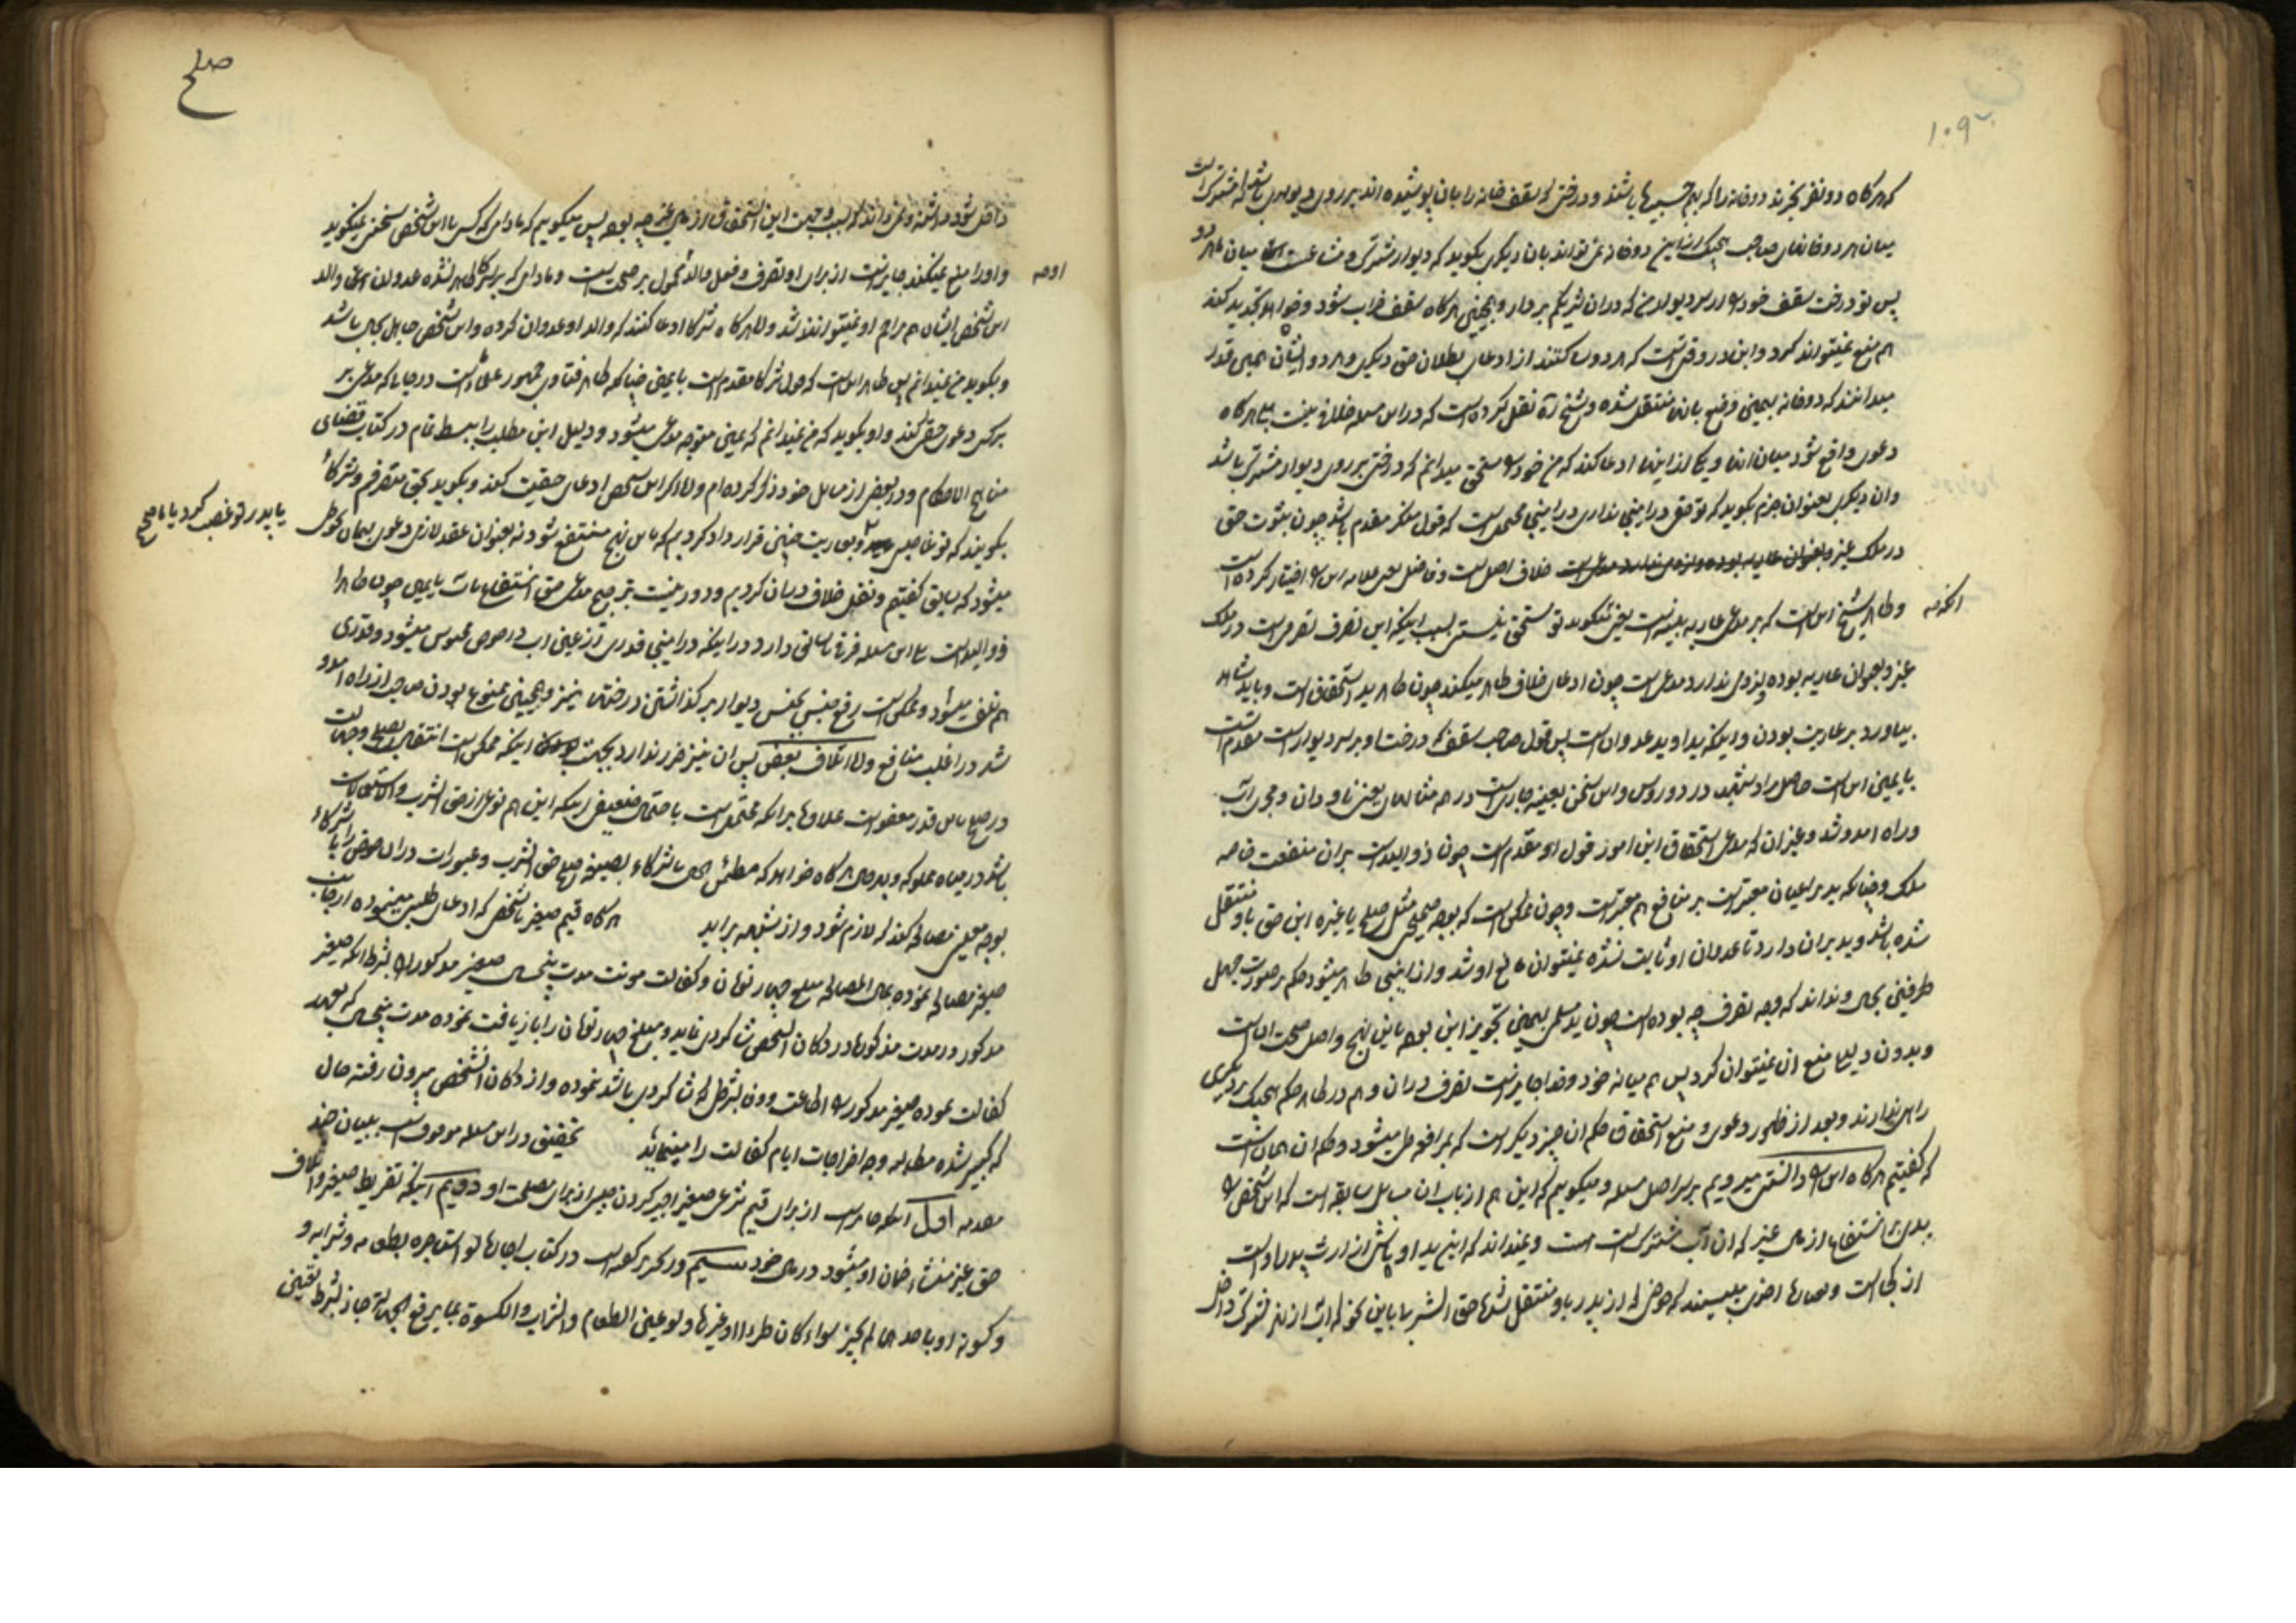 که هرگاه دو نفر بخرند دو خانه را که بهم چسبیده باشند و درختی که سقف خانه را بان پوشیده اند بر روی دیواری باشد که مشترک است
میان هر دو خانه صاحب هیچیک از این دو خانه نمی تواند بان دیگری بگوید که دیوار مشترک و مشاعست میان هر دو
پس تو درخت سقف خود را از سر دیوار من که در ان شریکم بردار و همچنین هرگاه سقف خراب شود و خواهد تجدید کند
هم منع نمیتواند کرد و این در وقتی است که هر دو ساکتند از ادعای بطلان حق دیگری و هر دو ایشان همین قدر
میدانند که دو خانه بهمین وضع بانها منتقل شده و شیخ ره نقل کرده است که در این مسئله خلافی نیست بلی هرگاه
دعوی واقع شود میان انها و یکی از اینها ادعا کند که من خود را مستحق میدانم که درختی بر روی دیوار مشترک باشد
و ان دیگری بعنوان جزم بگوید که تو حقی در اینجا نداری در اینجا محتمل است که قول منکر مقدم باشد چون ثبوت حق
در ملک غیر خلاف اصل است و فاضل یعنی علامه این را اختیار کرده است
و ظاهر شیخ این است که بر مدعی عاریه بینه است یعنی بگوید تو مستحق نیستی بسبب اینکه این تصرف تصرفی است در ملک
انکه
غیر و بعنوان عاریه بوده و لزومی ندارد مدعی است چون ادعای خلاف ظاهر میکند چون ظاهر ید استحقاق است و باید شاهد
بیاورد بر عاریت بودن و اینکه ید او ید عدوان است پس قول صاحب سقف که درخت او بر سر دیوار است مقدم است
با یمین این است حاصل مراد شهید در دروس و این سخن بعینه جاری است در همه مثالها یعنی ناودان و مجرای آب
و راه امد و شد و غیر ان که مدعی استحقاق این امور قول او مقدم است چون ذو الید است بر ان منفعت خاصه
ملک و چنانکه ید بر اعیان معتبر است بر منافع هم معتبر است و چون ممکن است که بوجه صحیحی مثل صلح یا غیره این حق باو منتقل
شده باشد و ید بر ان دارد تا عدوان او ثابت نشده نمیتوان مانع او شد و از اینجا ظاهر میشود حکم در صورت جهل
طرفین بحال و نداند که وجه تصرف چه بوده است چون ید مسلم بهمین تجویز این بوده باین نهج و اصل صحت ان است
و بدون دلیل منع ان نمیتوان کرد پس هم میانه خود و خدا جایز است تصرف در ان و هم در ظاهر حکم هیچیک بر دیگری
راهی ندارند و بعد از ظهور دعوی و منع استحقاق حکم ان چیز دیگر است که بمرافعه طی میشود و حکم ان همان است
که گفتیم هرگاه این را دانستی میرویم بر سر اصل مسئله و میگوییم که این هم از باب ان مسایل سابقه است که این شخص را
یدی بر انتفاع از مال غیر که ان آب مشترک است هست و نمیداند که این ید او یاکش از ارث پدر او است
از کجا است که حوضی که از پدر باو منتقل شده حق الشربها باین نحو که اب از نهر مشترک داخل
صلح
داخل شود داشته و نمیداند که سبب و جهت این استحقاق از مال غیر چه بوده پس میگوییم که مادامی که کسی با این شخص سخن نمیگوید
و او را منع نمیکند جایز است از برای او تصرف و فعل والد محمول بر صحت است و مادامی که بر شرکا ظاهر نشده عدوان والد
این شخص ایشان هم مزاحم او نمیتوانند شد و اما هرگاه شرکا ادعا کنند که والد او عدوان کرده و این شخص جاهل بحال باشد
و بگوید من نمیدانم پس ظاهر این است که قول شرکا مقدم است با یمین چنانکه ظاهر فتاوی جمهور علماء است در جایی که مدعی بر
کسی دعوی حقی کند و او بگوید که من نمیدانم که یمین متوجه مدعی میشود و دلیل این مطلب را ببسط تمام در کتاب قضای
مناهج الاحکام و در بعض از مسایل خود ذکر کرده ام و اما اگر این شخص ادعای حقیت کند و بگوید بحق متصرفم و شرکاء
بگویند که تو غاصبی و بعاریت چنین قرارداد کردیم که باین نهج منتفع شود نه بعنوان عقد لازمی دعوی همان نحو طی
یا پدر تو غصب کرد یا ما صح
میشود که سابق گفتیم و نقل خلاف در ان کردیم و دور نیست ترجیح مدعی حق انتفاع بات با یمین چون ظاهرا
ذو الید است بلی این مسئله فرقی با سابق دارد در اینکه در اینجا قدری از عین اب در حوض محبوس میشود و قدری
هم تلف میشود و ممکن است رفع جنس بجنس دیوار بر گذاشتن درختها نیز و همچنین ممنوع بودن صاحب از راه امد و
شد در اغلب منافع و اما اتلاف بعض پس ان نیز ضرر ندارد بجهت اینکه ممکن است انتقال بصلح و جهالت
در صلح باین قدر معفو است علاوه بر انکه محتمل است باحتمال ضعیفی اینکه این هم نوعی از حق الشرب و الاستعمال است
باشد در میاه مملوکه و بهر حال هرگاه خواهد که مطمئن باشد با شرکاء بصیغه صلح حق الشرب و عبور اب در ان حوض را با شرکاء
بوجه معینی مصالحه کند که لازم شود و از شبهه براید هرگاه قیم صغیر با شخصی که ادعای طلبی مینموده از جانب
صغیر مصالحه نموده بمال المصالحه مبلغ چهار تومان و کفالت مونت مدت پنجسال صغیر مذکور را بشرط انکه صغیر
مذکور در مدت مذکوره در دکان انشخص شاگردی نماید و مبلغ چهار تومان را بازیافت نموده مدت پنجسال که بعهده
کفالت نموده صغیر مذکور را اطاعت بشرطی که شاگردی باشد نموده و از دکان انشخص بیرون رفته حال
که کبیر شده مطالبه وجه اخراجات ایام کفالت را مینماید تحقیق در این مسئله موقوف است ببیان چند
مقدمه اول انکه جایز است از برای قیم شرعی صغیر اجیر کردن صغیر از برای مصلحت او دویم اینکه تفریط صغیر و اتلاف
حق غیر منشاء ضمان او میشود در مال خود سیم در تحریر گفته است در کتاب اجاره لو استاجره بطعامه و شرابه و
کسوته او باحدهما لم یجز سواء کان ظئرا او غیرها و لو عین الطعام و الشراب و الکسوة بما یرفع الجهالة جاز بشرط تعیین